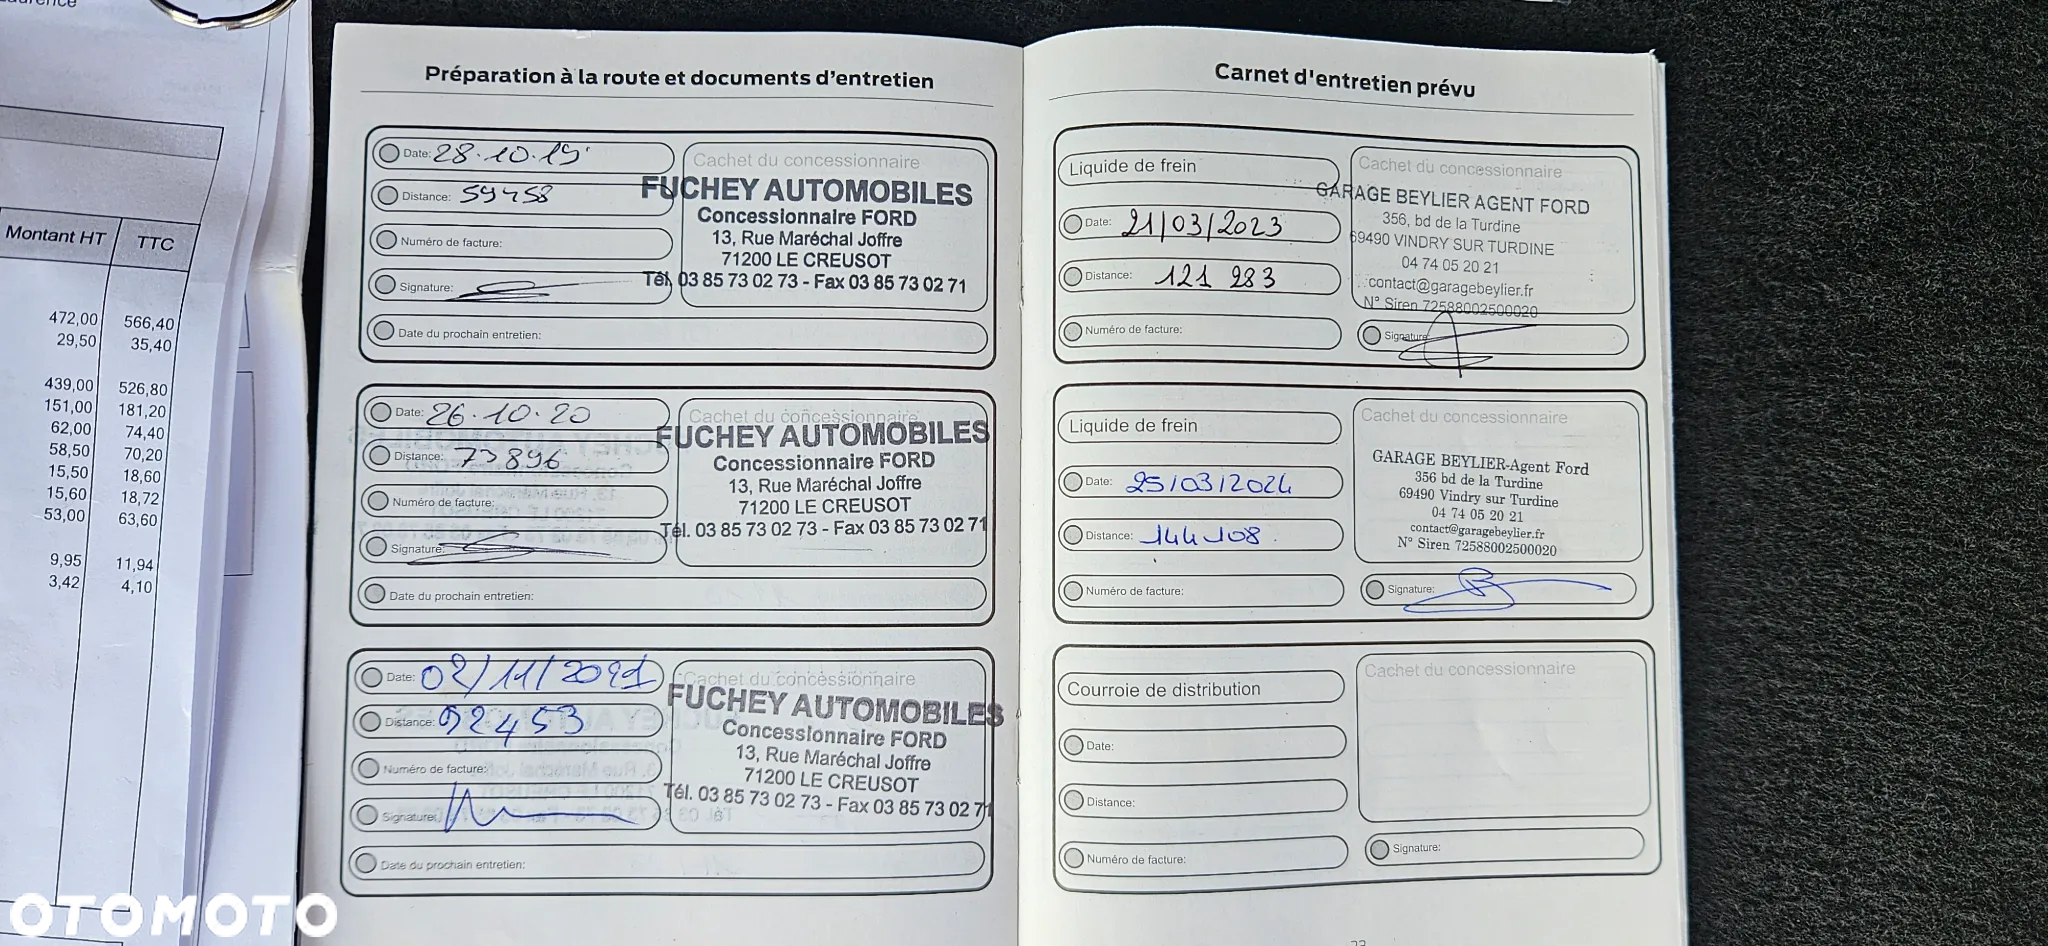 Montant HT TTC
472,00 566,40
29,50 35,40
439,00 526,80
151,00 181,20
62,00 74,40
58,50 70,20
15,50 18,60
15,60 18,72
53,00 63,60
9,95 11,94
3,42 4,10
Préparation à la route et documents d'entretien
Date: 28.10.19
Distance: 59458
Numéro de facture:
Signature:
Date du prochain entretien:
Cachet du concessionnaire
FUCHEY AUTOMOBILES
Concessionnaire FORD
13, Rue Maréchal Joffre
71200 LE CREUSOT
Tél. 03 85 73 02 73 - Fax 03 85 73 02 71
Date: 26.10.20
Distance: 73896
Numéro de facture:
Signature:
Date du prochain entretien:
Cachet du concessionnaire
FUCHEY AUTOMOBILES
Concessionnaire FORD
13, Rue Maréchal Joffre
71200 LE CREUSOT
Tél. 03 85 73 02 73 - Fax 03 85 73 02 71
Date: 02/11/2021
Distance: 92453
Numéro de facture:
Signature:
Date du prochain entretien:
Cachet du concessionnaire
FUCHEY AUTOMOBILES
Concessionnaire FORD
13, Rue Maréchal Joffre
71200 LE CREUSOT
Tél. 03 85 73 02 73 - Fax 03 85 73 02 71
Carnet d'entretien prévu
Liquide de frein
Date: 21/03/2023
Distance: 121 983
Numéro de facture:
Cachet du concessionnaire
GARAGE BEYLIER AGENT FORD
356, bd de la Turdine
69490 VINDRY SUR TURDINE
04 74 05 20 21
contact@garagebeylier.fr
N° Siren 72588002500020
Signature:
Liquide de frein
Date: 25/03/2024
Distance: 144108
Numéro de facture:
Cachet du concessionnaire
GARAGE BEYLIER-Agent Ford
356 bd de la Turdine
69490 Vindry sur Turdine
04 74 05 20 21
contact@garagebeylier.fr
N° Siren 72588002500020
Signature:
Courroie de distribution
Date:
Distance:
Numéro de facture:
Cachet du concessionnaire
Signature:
OTOMOTO